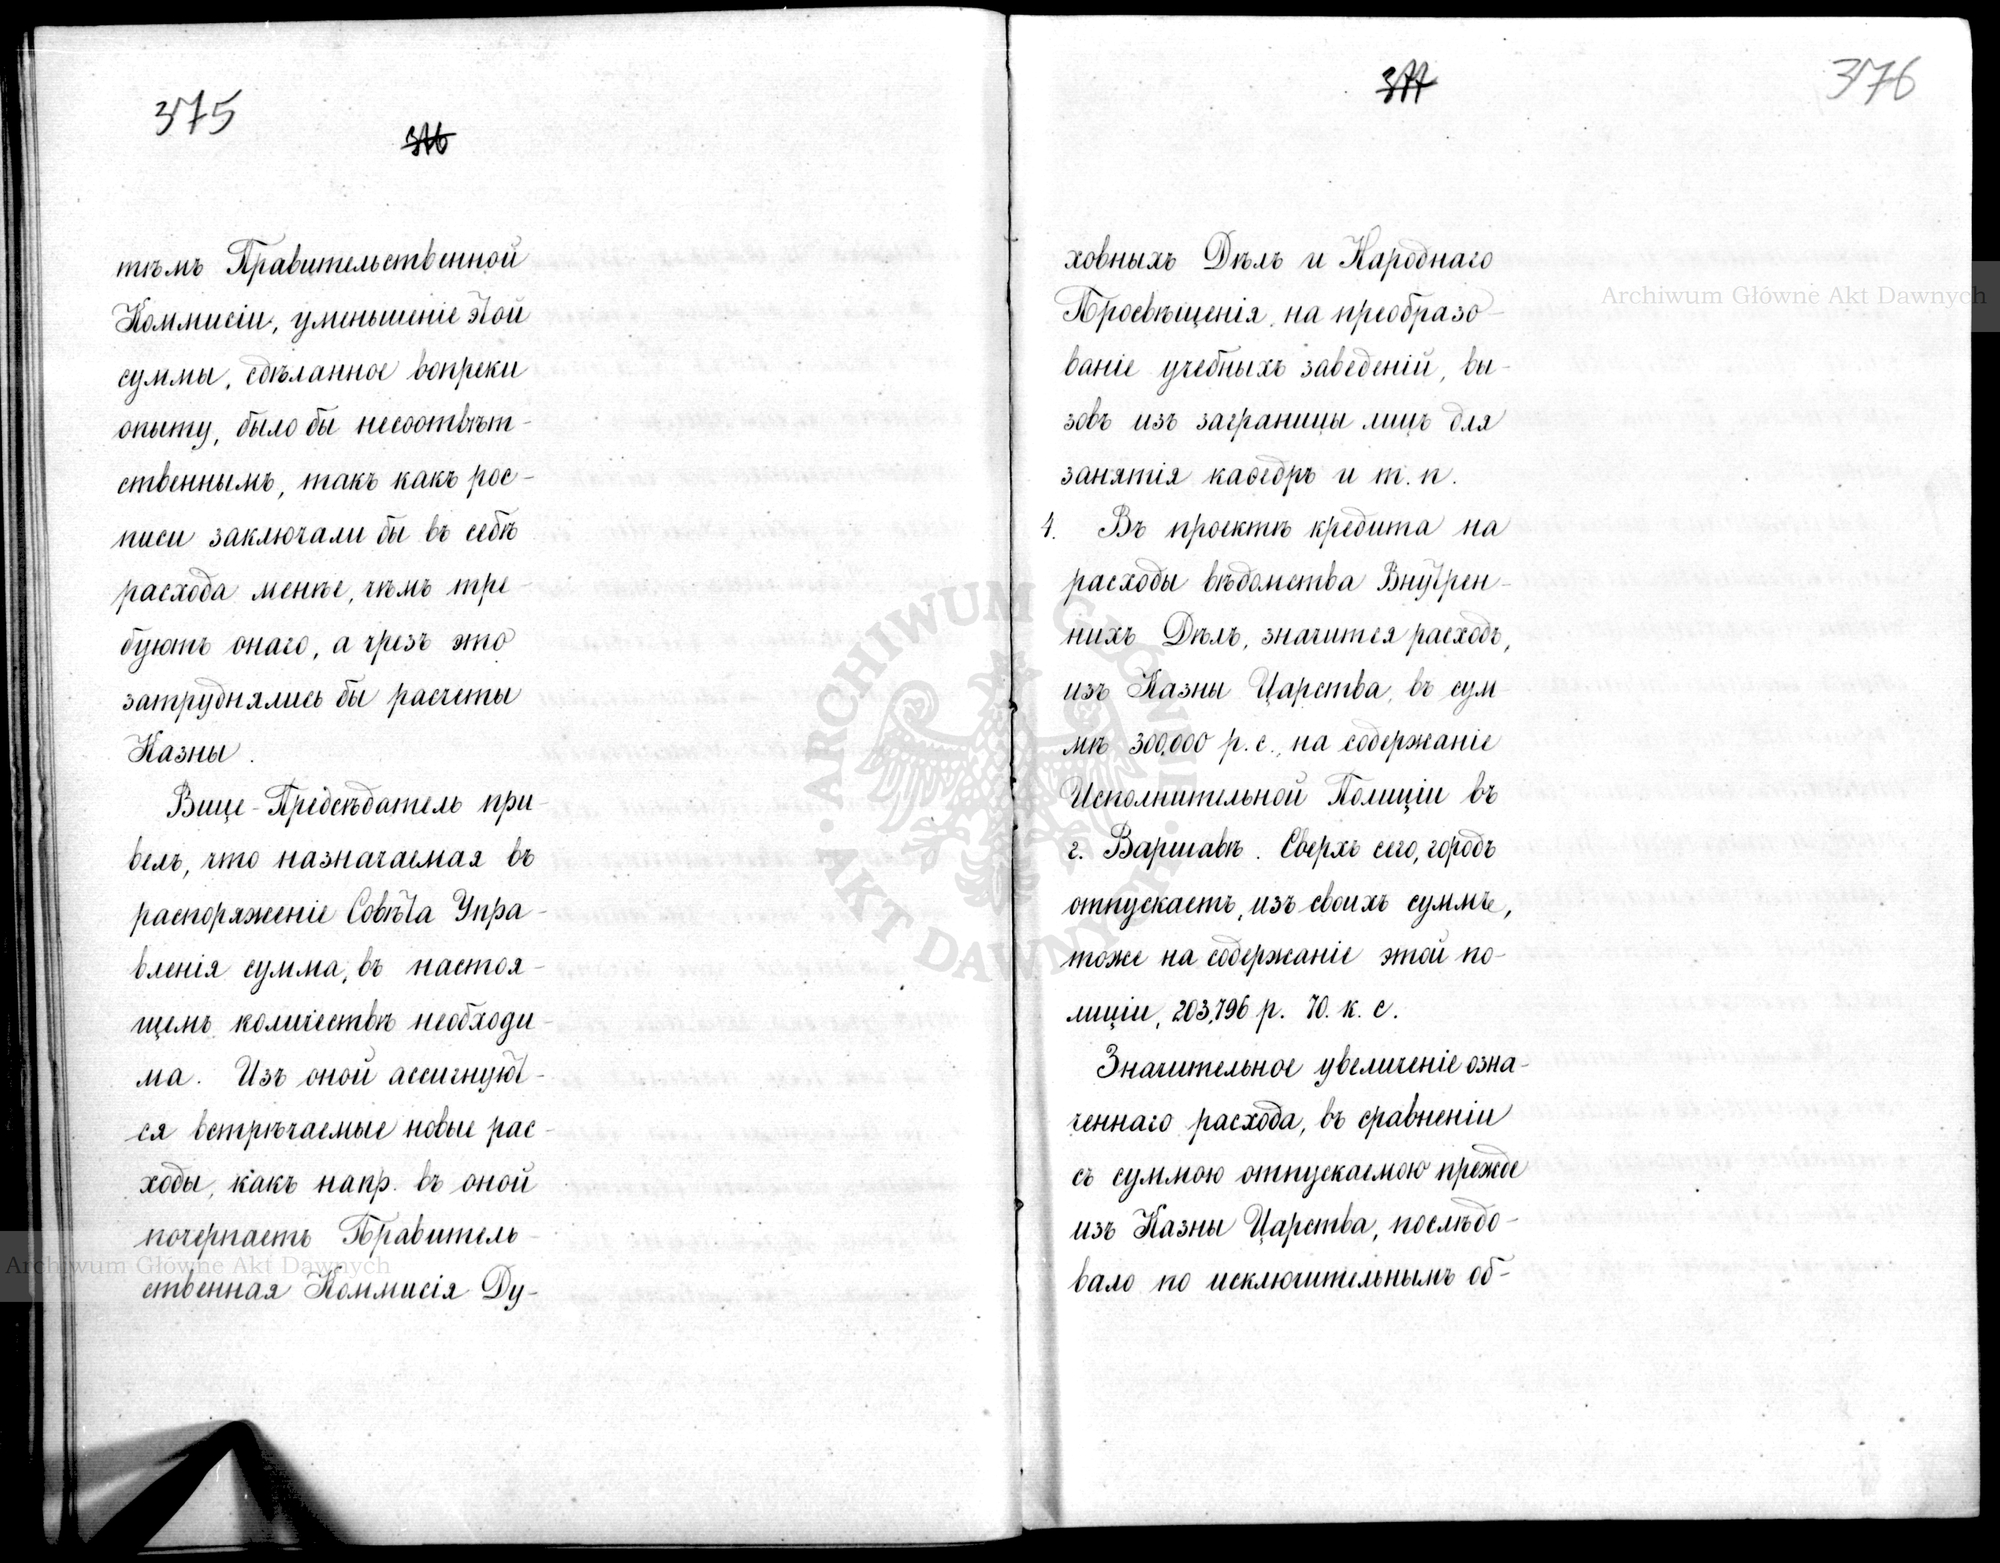 375
376
тѣмъ Правительственной
Коммисіи, уменьшеніе этой
суммы, сдѣланное вопреки
опыту, было бы несоотвѣт-
ственнымъ, такъ какъ рос-
писи заключали бы въ себѣ
расхода менѣе, чѣмъ тре-
буютъ онаго, а чрезъ это
затруднялись бы расчеты
Казны.
Вице-Предсѣдатель при-
велъ, что назначаемая въ
распоряженіе Совѣта Упра-
вленія сумма, въ настоя-
щемъ количествѣ необходи-
ма. Изъ оной ассигнуют-
ся встрѣчаемые новые рас-
ходы, какъ напр. въ оной
почерпаетъ Правитель-
ственная Коммисія Ду-
377
376
ховныхъ Дѣлъ и Народнаго
Просвѣщенія, на преобразо-
ваніе учебныхъ заведеній, вы-
зовъ изъ заграницы лицъ для
занятія каѳедръ и т. п.
4. Въ проектѣ кредита на
расходы вѣдомства Внутрен-
нихъ Дѣлъ, значится расходъ,
изъ Казны Царства, въ сум
мѣ 300,000 р. с., на содержаніе
Исполнительной Полиціи въ
г. Варшавѣ. Сверхъ сего, городъ
отпускаетъ, изъ своихъ суммъ,
тоже на содержаніе этой по-
лиціи, 203,796 р. 70. к. с.
Значительное увеличеніе озна-
ченнаго расхода, въ сравненіи
съ суммою отпускаемою прежде
изъ Казны Царства, послѣдо-
вало по исключительнымъ об-
Archiwum Główne Akt Dawnych
Archiwum Główne Akt Dawnych
ARCHIWUM GŁÓWNE · AKT DAWNYCH ·